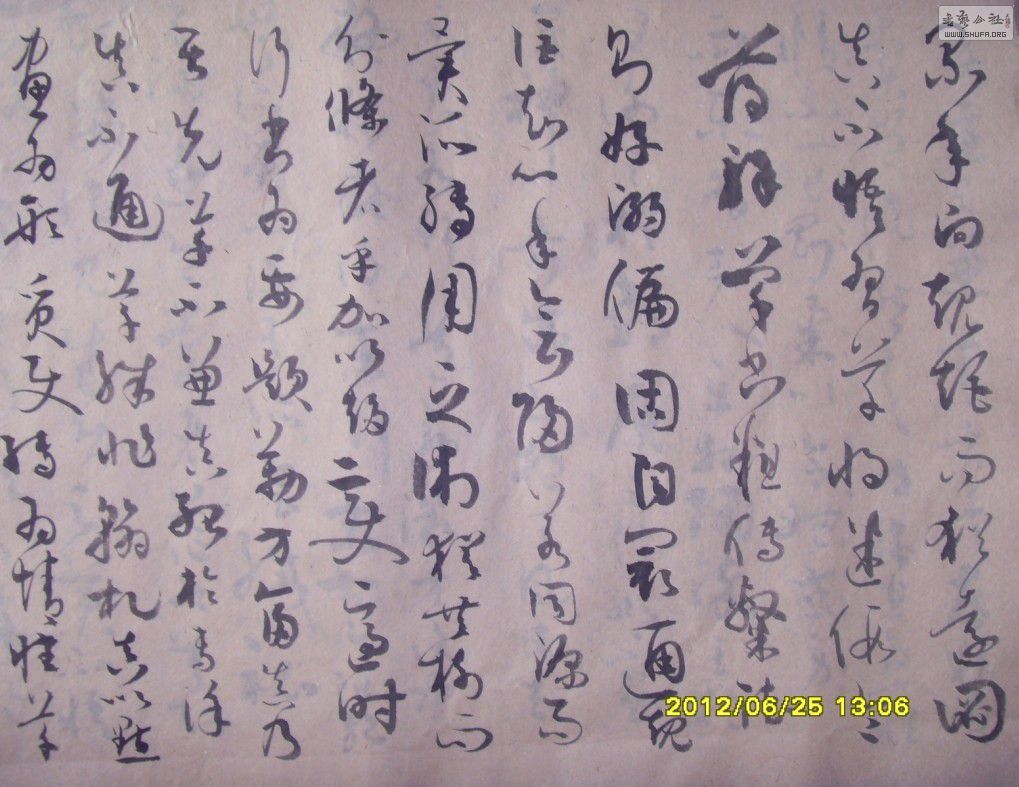 累年向規矩而猶遠圖
真不悟習草將迷假令
薄解草書粗傳隸法
則好溺偏固自閡通規
詎知心手會歸若同源而
異派轉用之術猶共樹而
分條者乎加以趨變適時
行書為要題勒方畐真乃
居先草不兼真殆於專謹
真不通草殊非翰札真以點
畫為形質使轉為情性草
WWW.SHUFA.ORG
2012/06/25 13:06